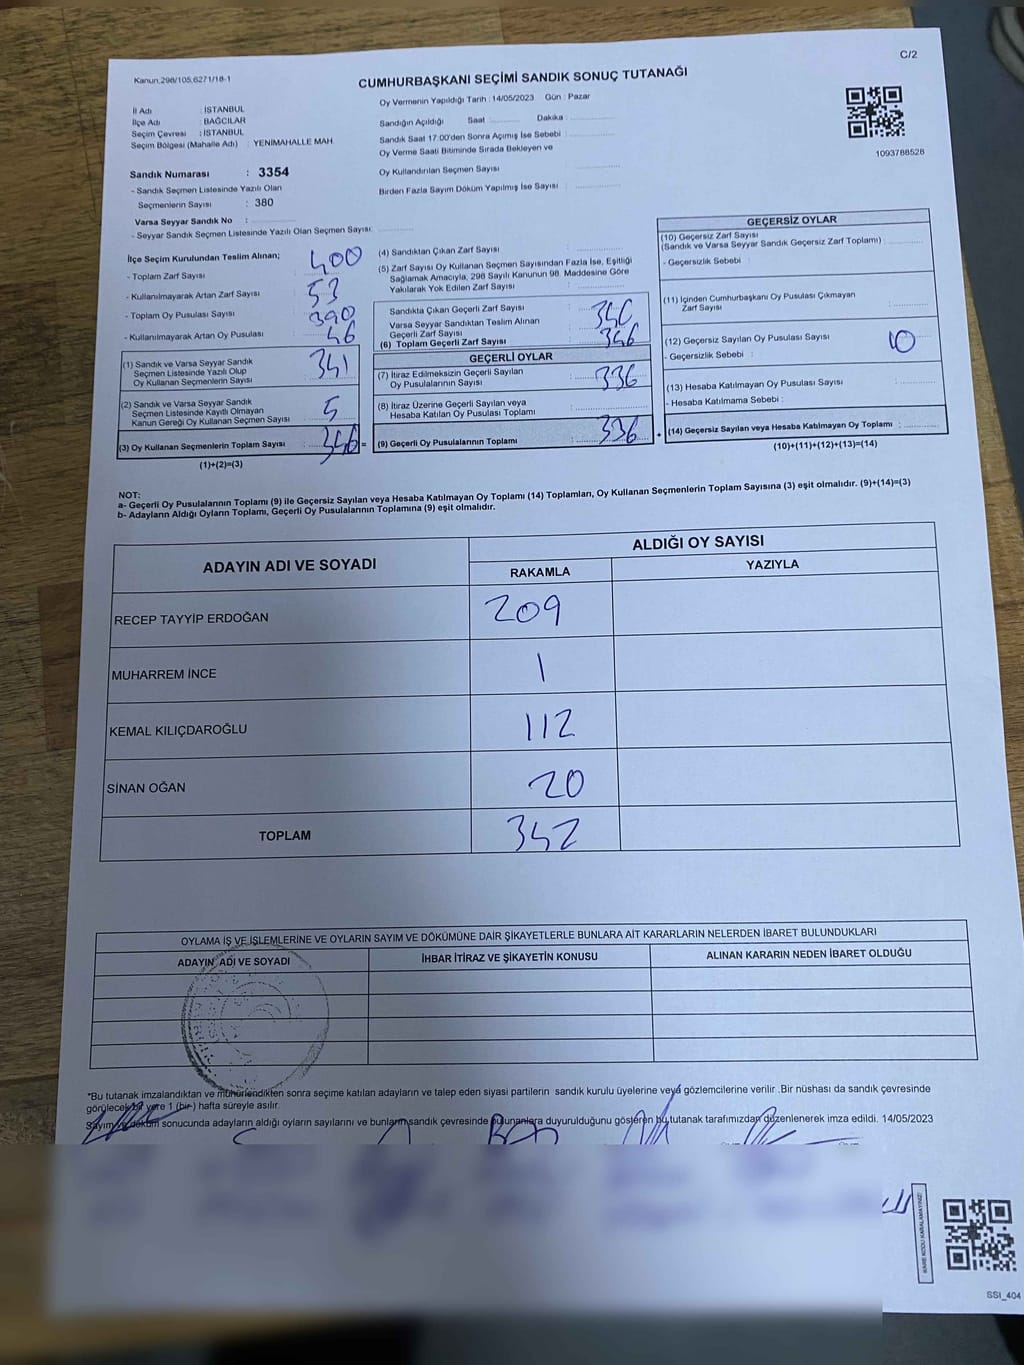 C/2
Kanun.298/105,6271/18-1
CUMHURBAŞKANI SEÇİMİ SANDIK SONUÇ TUTANAĞI
İl Adı : İSTANBUL
İlçe Adı : BAĞCILAR
Seçim Çevresi : İSTANBUL
Seçim Bölgesi (Mahalle Adı) : YENİMAHALLE MAH.
Oy Vermenin Yapıldığı Tarih : 14/05/2023 Gün : Pazar
Sandığın Açıldığı Saat : Dakika :
Sandık Saat 17:00'den Sonra Açımış İse Sebebi :
Oy Verme Saati Bitiminde Sırada Bekleyen ve
Oy Kullandırılan Seçmen Sayısı
Birden Fazla Sayım Döküm Yapılmış İse Sayısı :
1093788528
Sandık Numarası : 3354
- Sandık Seçmen Listesinde Yazılı Olan
Seçmenlerin Sayısı : 380
Varsa Seyyar Sandık No :
- Seyyar Sandık Seçmen Listesinde Yazılı Olan Seçmen Sayısı:
İlçe Seçim Kurulundan Teslim Alınan;
- Toplam Zarf Sayısı : 400
- Kullanılmayarak Artan Zarf Sayısı : 53
- Toplam Oy Pusulası Sayısı : 390
- Kullanılmayarak Artan Oy Pusulası : 46
(1) Sandık ve Varsa Seyyar Sandık
Seçmen Listesinde Yazılı Olup
Oy Kullanan Seçmenlerin Sayısı : 341
(2) Sandık ve Varsa Seyyar Sandık
Seçmen Listesinde Kayıtlı Olmayan
Kanun Gereği Oy Kullanan Seçmen Sayısı : 5
(3) Oy Kullanan Seçmenlerin Toplam Sayısı : 346 =
(1)+(2)=(3)
(4) Sandıktan Çıkan Zarf Sayısı :
(5) Zarf Sayısı Oy Kullanan Seçmen Sayısından Fazla İse, Eşitliği
Sağlamak Amacıyla, 298 Sayılı Kanunun 98. Maddesine Göre
Yakılarak Yok Edilen Zarf Sayısı :
Sandıkta Çıkan Geçerli Zarf Sayısı : 346
Varsa Seyyar Sandıktan Teslim Alınan
Geçerli Zarf Sayısı
(6) Toplam Geçerli Zarf Sayısı : 346
GEÇERLİ OYLAR
(7) İtiraz Edilmeksizin Geçerli Sayılan
Oy Pusulalarının Sayısı : 336
(8) İtiraz Üzerine Geçerli Sayılan veya
Hesaba Katılan Oy Pusulası Toplamı :
(9) Geçerli Oy Pusulalarının Toplamı : 336 +
GEÇERSİZ OYLAR
(10) Geçersiz Zarf Sayısı
(Sandık ve Varsa Seyyar Sandık Geçersiz Zarf Toplamı) :
- Geçersizlik Sebebi :
(11) İçinden Cumhurbaşkanı Oy Pusulası Çıkmayan
Zarf Sayısı :
(12) Geçersiz Sayılan Oy Pusulası Sayısı : 10
- Geçersizlik Sebebi :
(13) Hesaba Katılmayan Oy Pusulası Sayısı :
- Hesaba Katılmama Sebebi :
(14) Geçersiz Sayılan veya Hesaba Katılmayan Oy Toplamı :
(10)+(11)+(12)+(13)=(14)
NOT:
a- Geçerli Oy Pusulalarının Toplamı (9) ile Geçersiz Sayılan veya Hesaba Katılmayan Oy Toplamı (14) Toplamları, Oy Kullanan Seçmenlerin Toplam Sayısına (3) eşit olmalıdır. (9)+(14)=(3)
b- Adayların Aldığı Oyların Toplamı, Geçerli Oy Pusulalarının Toplamına (9) eşit olmalıdır.
ADAYIN ADI VE SOYADI
ALDIĞI OY SAYISI
RAKAMLA YAZIYLA
RECEP TAYYİP ERDOĞAN 209
MUHARREM İNCE 1
KEMAL KILIÇDAROĞLU 112
SİNAN OĞAN 20
TOPLAM 342
OYLAMA İŞ VE İŞLEMLERİNE VE OYLARIN SAYIM VE DÖKÜMÜNE DAİR ŞİKAYETLERLE BUNLARA AİT KARARLARIN NELERDEN İBARET BULUNDUKLARI
ADAYIN ADI VE SOYADI İHBAR İTİRAZ VE ŞİKAYETİN KONUSU ALINAN KARARIN NEDEN İBARET OLDUĞU
*Bu tutanak imzalandıktan ve mühürlendikten sonra seçime katılan adayların ve talep eden siyasi partilerin sandık kurulu üyelerine veya gözlemcilerine verilir. Bir nüshası da sandık çevresinde
görülecek bir yere 1 (bir) hafta süreyle asılır.
Sayım ve döküm sonucunda adayların aldığı oyların sayılarını ve bunların sandık çevresinde bulunanlara duyurulduğunu gösteren bu tutanak tarafımızdan düzenlenerek imza edildi. 14/05/2023
KARE KODU KARALAMAYINIZ!
SSI_404